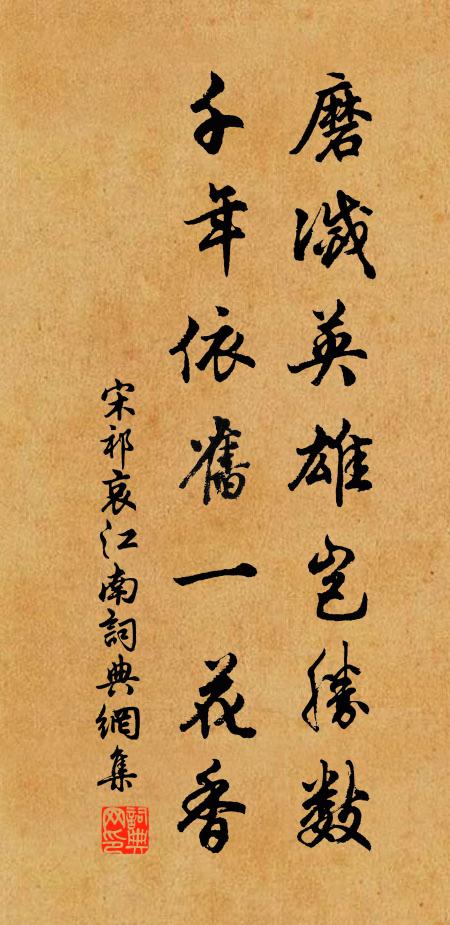 磨滅英雄岂勝数
千年依舊一花香
宋祁哀江南詞典網集
詞典网印